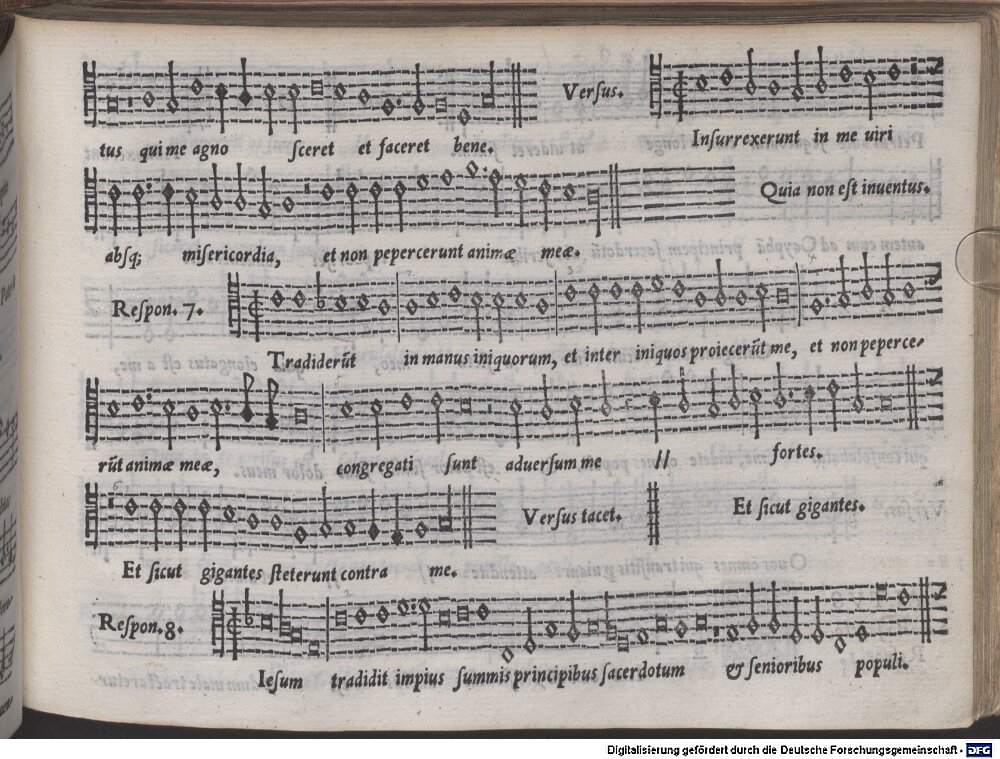 tus qui me agno ſceret et faceret bene. Verſus. Inſurrexerunt in me uiri
abſq; miſericordia, et non pepercerunt animæ meæ. Quia non eſt inuentus.
Reſpon. 7. Tradiderũt in manus iniquorum, et inter iniquos proiecerũt me, et non peperce-
rũt animæ meæ, congregati ſunt aduerſum me // fortes.
Et ſicut gigantes ſteterunt contra me. Verſus tacet. Et ſicut gigantes.
Reſpon. 8. Ieſum tradidit impius ſummis principibus ſacerdotum & ſenioribus populi.
Digitalisierung gefördert durch die Deutsche Forschungsgemeinschaft - DFG